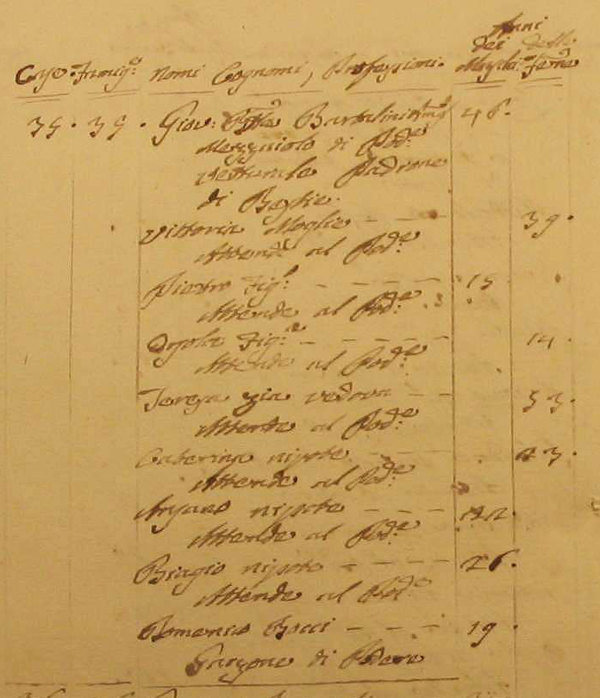 Anni
dei delle
Case. Famigᵉ: Nomi Cognomi, Professioni. Maschi: Femᵉ
35. 35. Giov: Battᵃ Bartolini 46.
Mezzaiolo di Podᵉ:
Vetturale Padrone
di Bestie.
Vittoria Moglie - - - 39.
Attende al Podᵉ:
Pietro Figᵒ: - - - 15
Attende al Podᵉ:
Figᵃ: - - - 14.
Attende al Podᵉ:
Teresa zia vedova - - 53.
Attende al Podᵉ:
Caterina nipote - - - 23.
Attende al Podᵉ:
nipote - - -
Attende al Podᵉ:
Biagio nipote - - - 26.
Attende al Podᵉ:
Domenico Bocci - - - 19.
Garzone di Podere